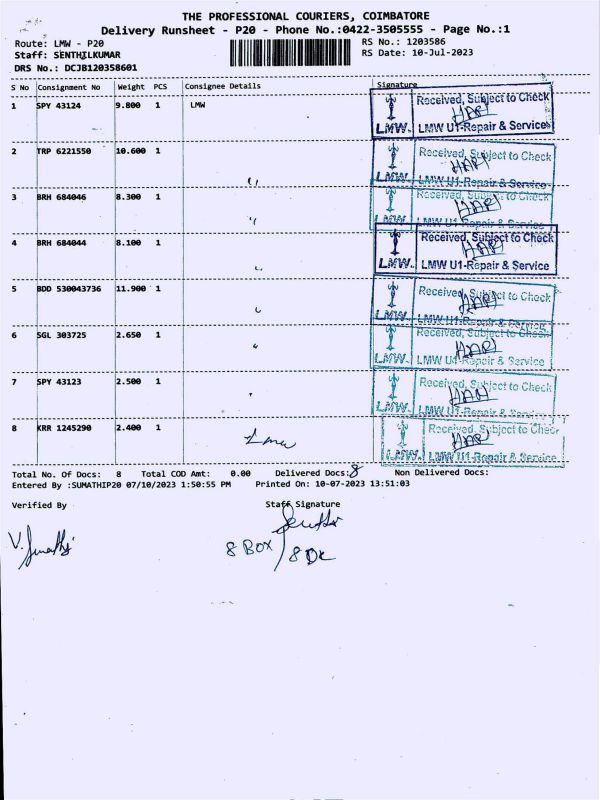 THE PROFESSIONAL COURIERS, COIMBATORE
Delivery Runsheet - P20 - Phone No.:0422-3505555 - Page No.:1
Route: LMW - P20 RS No.: 1203586
Staff: SENTHILKUMAR RS Date: 10-Jul-2023
DRS No.: DCJB120358601
S No Consignment No Weight PCS Consignee Details Signature
1 SPY 43124 9.800 1 LMW Received, Subject to Check
HARI
LMW LMW U1-Repair & Services
2 TRP 6221550 10.600 1 Received, Subject to Check
HARI
LMW LMW U1-Repair & Service
3 BRH 684046 8.300 1 Received, Subject to Check
HARI
LMW LMW U1-Repair & Service
4 BRH 684044 8.100 1 Received, Subject to Check
HARI
LMW LMW U1-Repair & Service
5 BDD 530043736 11.900 1 Received, Subject to Check
HARI
LMW U1-Repair & Service
6 SGL 303725 2.650 1 Received, Subject to Check
HARI
LMW LMW U1-Repair & Service
7 SPY 43123 2.500 1 Received, Subject to Check
HARI
LMW LMW U1-Repair & Service
8 KRR 1245290 2.400 1 Lmw Received, Subject to Check
HARI
LMW LMW U1-Repair & Service
Total No. Of Docs: 8 Total COD Amt: 0.00 Delivered Docs: 8 Non Delivered Docs:
Entered By :SUMATHIP20 07/10/2023 1:50:55 PM Printed On: 10-07-2023 13:51:03
Verified By Staff Signature
V. Sumathi
8 BOX / 8 Dc